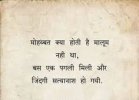 मोहब्बत क्या होती है मालूम
नही था,
बस एक पगली मिली और
जिंदगी सत्यानाश हो गयी.